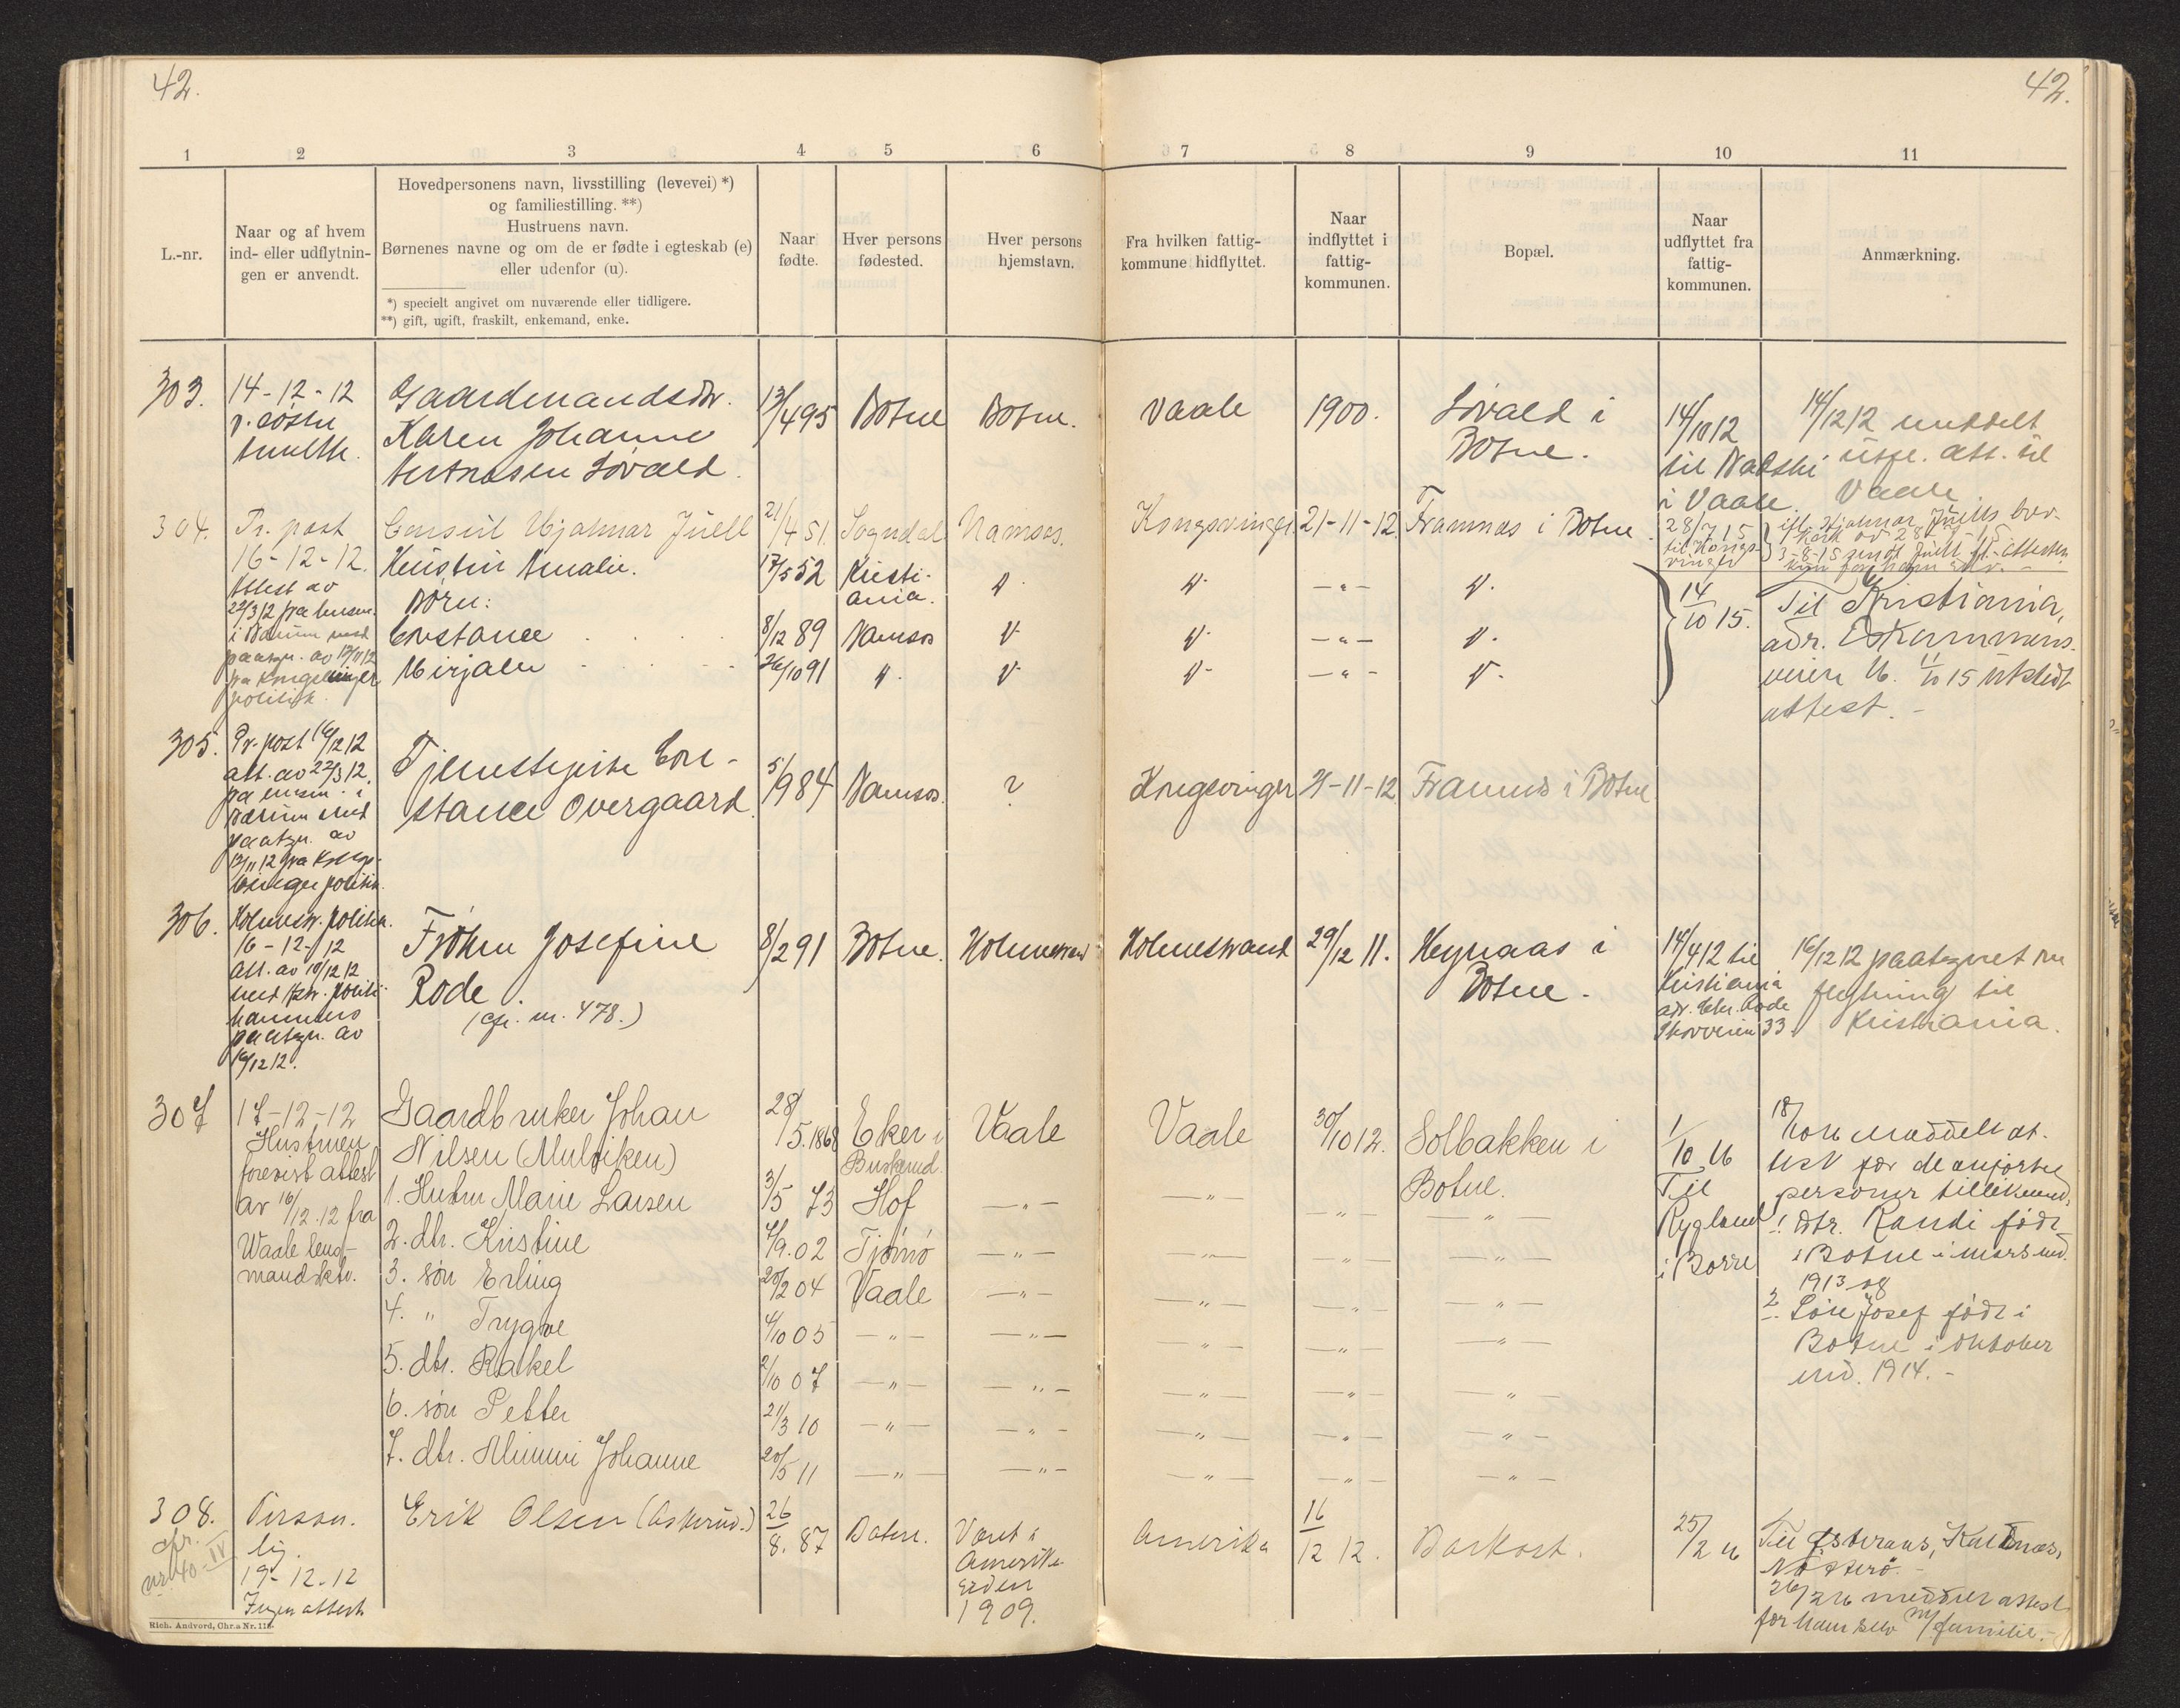 42.
42.
1 2 3 4 5 6 7 8 9 10 11
L.-nr.
Naar og af hvem
ind- eller udflytnin-
gen er anvendt.
Hovedpersonens navn, livsstilling (levevei) *)
og familiestilling. **)
Hustruens navn.
Børnenes navne og om de er fødte i egteskab (e)
eller udenfor (u).
*) specielt angivet om nuværende eller tidligere.
**) gift, ugift, fraskilt, enkemand, enke.
Naar
fødte.
Hver persons
fødested.
Hver persons
hjemstavn.
Fra hvilken fattig-
kommune hidflyttet.
Naar
indflyttet i
fattig-
kommunen.
Bopæl.
Naar
udflyttet fra
fattig-
kommunen.
Anmærkning.
303.
14-12-12
Gaardmandsdtr.
Karen Johanne
Løvald
13/4 95
Botne
Botne.
Vaale
1900.
Løvald i
Botne.
14/10 12
til
i Vaale
14/12 12 meddelt
att. til
Vaale
304.
Pr. post
16-12-12.
Attest av
22/3 12 fra lensm.
i Bærum med
paategn. av 12/11 12
fra Kongsvinger
politik.
Consul Hjalmar Juell
Amalie.
Børn:
Constance
Mirjam
21/4 51.
17/5 52
8/12 89
26/10 91
Sogndal
Kristi-
ania.
Namsos
"
Namsos.
"
"
"
Kongsvinger
"
"
"
21-11-12.
— " —
— " —
— " —
Framnæs i Botne
"
"
"
28/7 15
til Kongs-
vinger
14/10 15.
ifl. Hjalmar Juells brev-
kort av 28-7-15
3-8-15 sendt Juell fl.-attesten
kun for ham selv. -
Til Kristiania,
adr.
veien 16. 11/10 15 utstedt
attest. -
305.
Pr. post 16/12 12
att. av 22/3 12.
fra lensm. i
Bærum med
paategn. av
12/11 12 fra Kongs-
vinger politik.
Tjenestepike Con-
stance Overgaard.
5/9 84
Namsos.
?
Kongsvinger
21-11-12
Framnes i Botne
306.
Holmestr. politik.
16-12-12
att. av 10/12 12
med Hstr. politi-
kammers
paategn. av
16/12 12.
Frøken Josefine
Rode.
(cfr. nr. 478.)
8/2 91
Botne.
Holmestrand
Holmestrand
29/12 11.
Heynaas i
Botne.
14/4 12 til
Kristiania
adr. Chr. Rode
33
16/12 12 paategnet om
flytning til
Kristiania.
307
17-12-12
Hustruen
forevist attest
av 16/12.12 fra
Waale lens-
mandsktr.
Gaardbruker Johan
Nilsen (Mulviken)
1. Hustru Marie Larsen
2. dtr. Kristine
3. søn Erling
4. " Trygve
5. dtr. Rakel
6. søn Petter
7. dtr. Mimmi Johanne
28/5.1868
3/5 73
4/9.02
20/2 04
4/10 05
2/10 07
21/3 10
20/5 11
Eker i
Buskerud.
Hof
Tjømø
Vaale
— " —
— " —
— " —
— " —
Vaale
— " —
— " —
— " —
— " —
— " —
— " —
— " —
Vaale
— " —
— " —
— " —
— " —
— " —
— " —
— " —
30/10 12.
— " —
— " —
— " —
— " —
— " —
— " —
— " —
Solbakken i
Botne.
— " —
— " —
— " —
— " —
— " —
— " —
— " —
1/10 16
Til
Rygland
i Borre
18/10 16 meddelt at-
test for de anførte
personer tillikemed
1. dtr. Randi født
i Botne i mars md.
1913 og
2. Søn Josef født i
Botne i oktober
md. 1914. -
308.
cfr.
nr. 40-IV
Person-
lig.
19-12-12
Ingen attest
Erik Olsen (Askerud.)
26/8. 87
Botne.
Været i
Amerika
siden
1909.
Amerika
16/12 12.
25/2 16
Til Kaldnæs,
Nøtterø. -
26/2 16 meddelt attest
for ham selv m/ familie. -
Rich. Andvord, Chr.a Nr. 118.